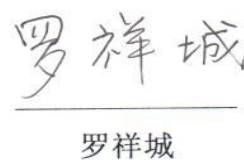 罗祥城
罗祥城